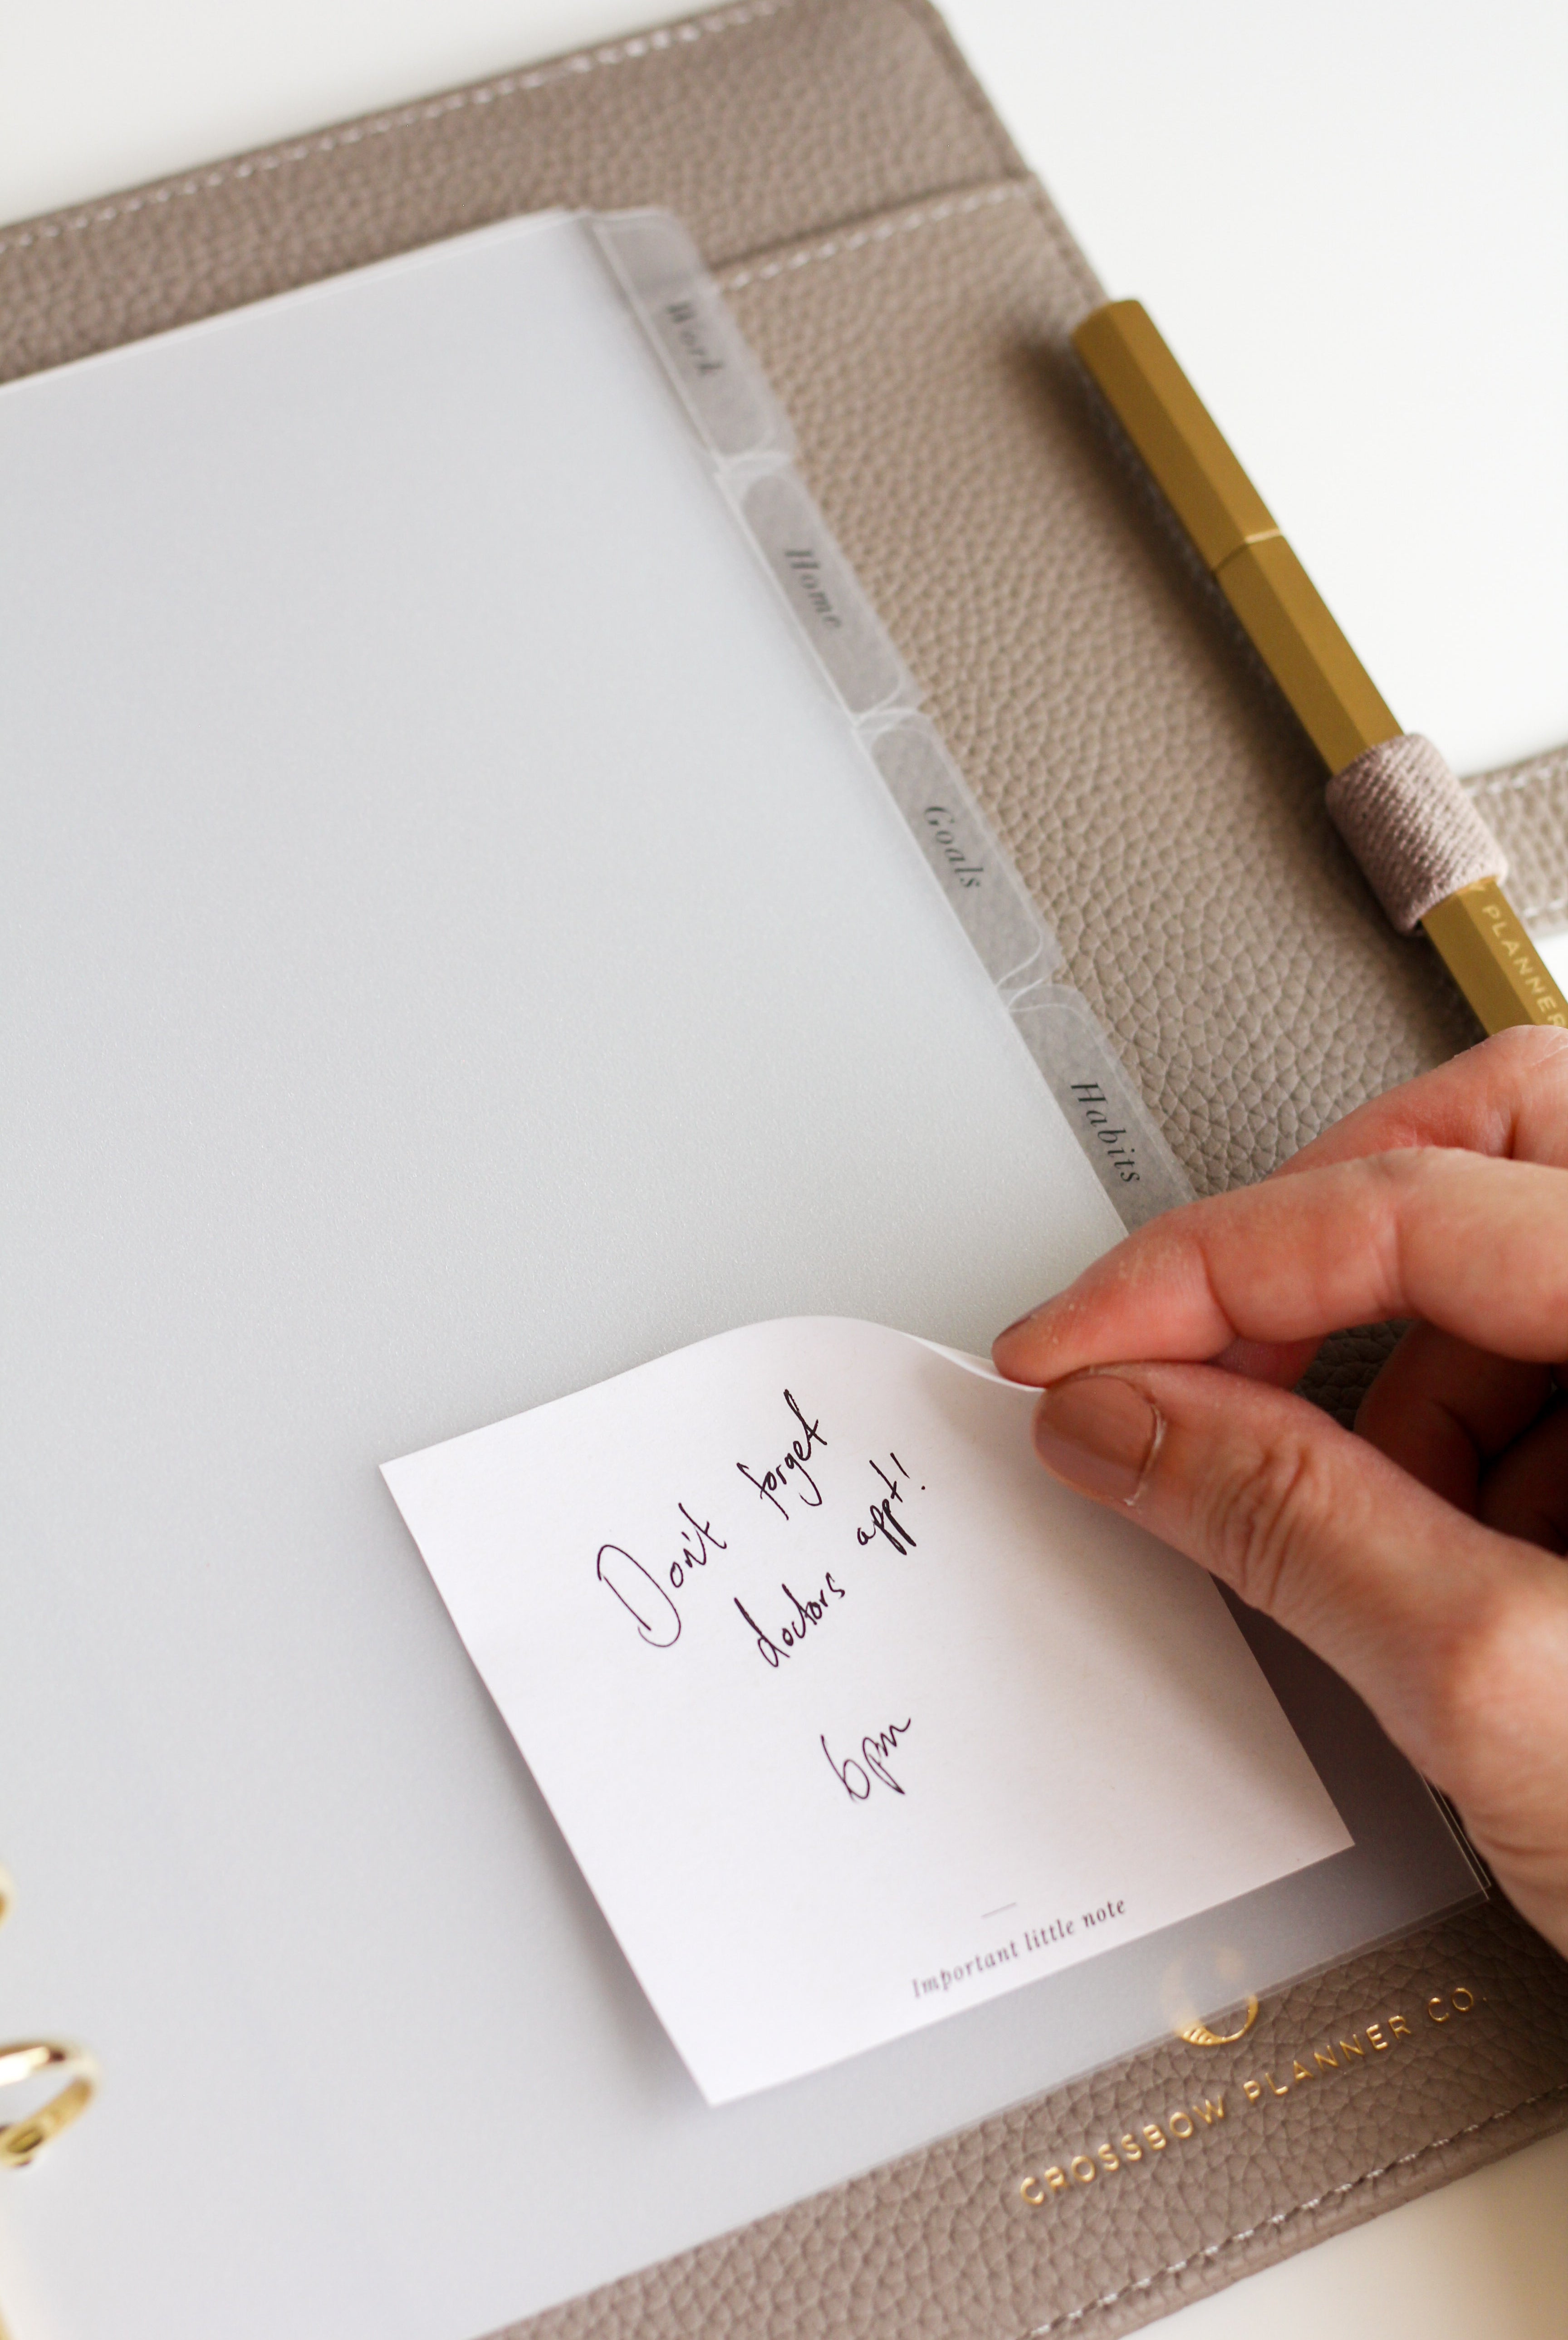 Work
Home
Goals
Habits
PLANNER
Don't forget
doctors appt!
6pm
Important little note
CROSSBOW PLANNER CO.